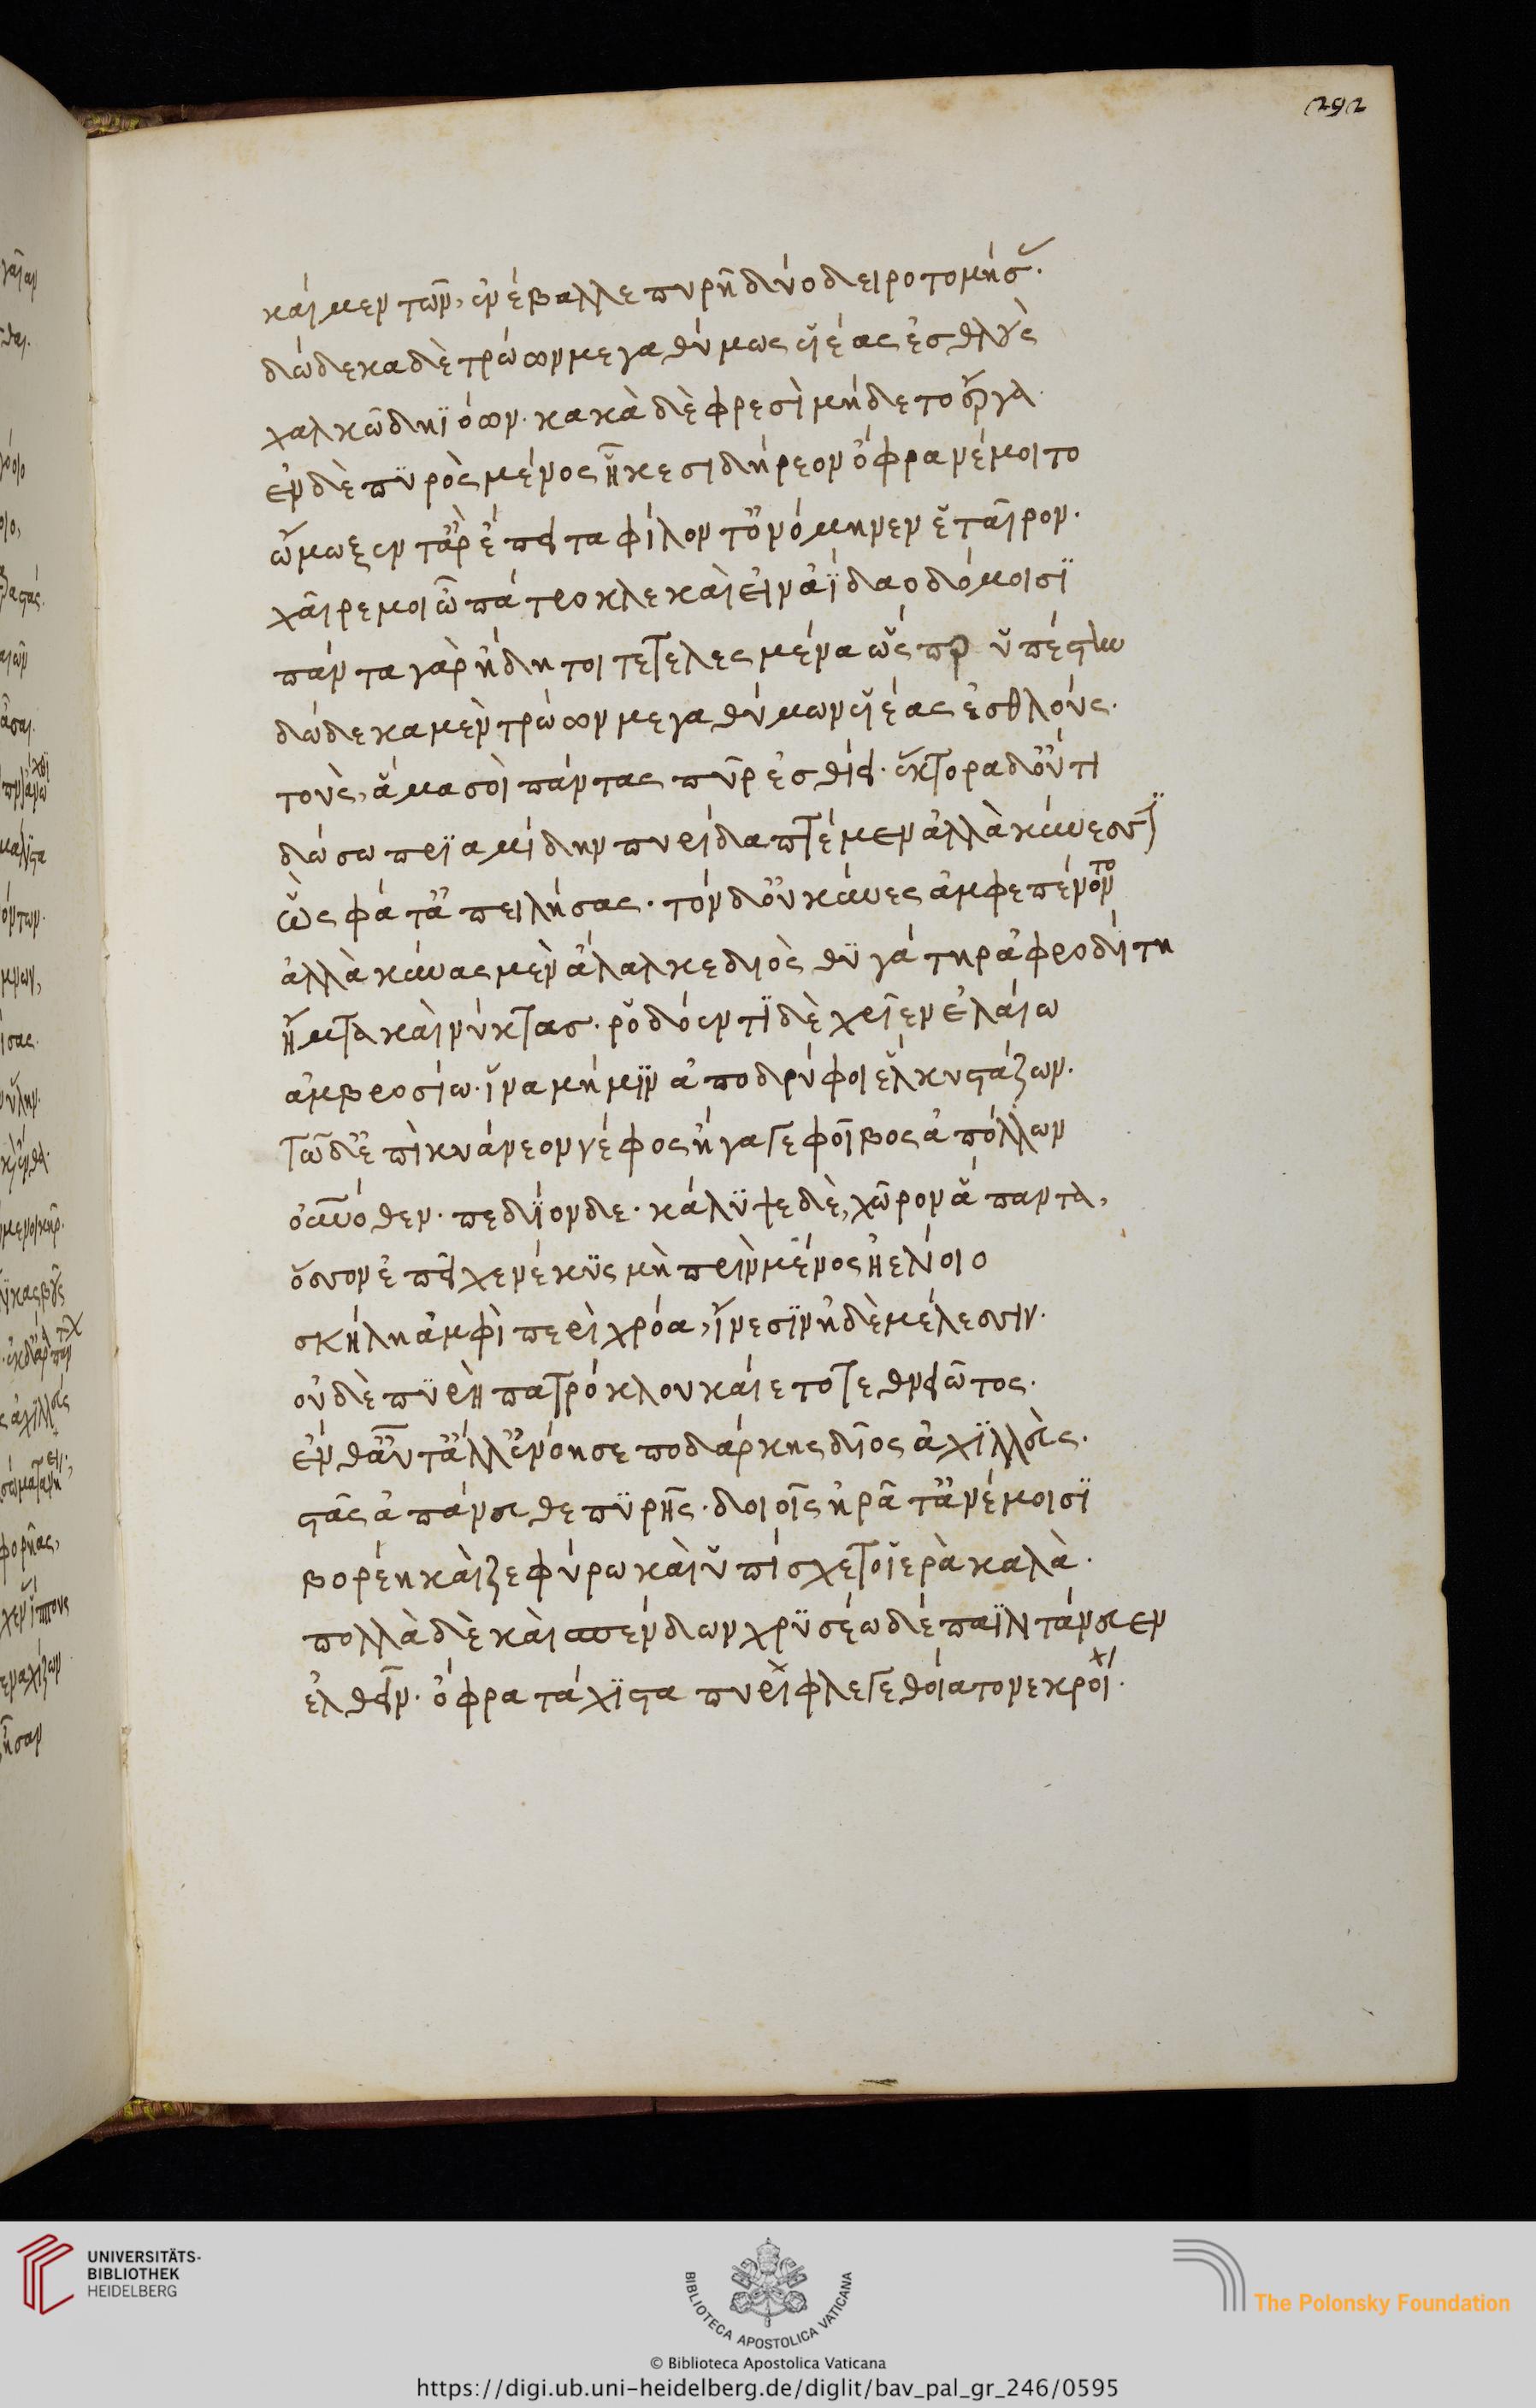 292
καί μεν τῶν, ἐνέβαλλε πυρῆ δύο δειροτομήσας.
δώδεκα δὲ τρώων μεγαθύμως υἱέας ἐσθλοὺς
χαλκῶ δηϊόων. κακὰ δὲ φρεσὶ μήδετο ἔργα.
ἐν δὲ πϋρὸς μένος ἧκε σιδήρεον ὄφρα νέμοιτο
ὤμωξεν τἂρ ἔπειτα φίλον τ' ὀνόμηνεν ἑταῖρον.
χαῖρε μοι ὦ πάτροκλε καὶ εἰν ἀΐδαο δόμοισϊ
πάντα γὰρ ἤδη τοι τετελεσμένα ὥς περ ὑπέστην
δώδεκα μὲν τρώων μεγαθύμων υἱέας ἐσθλούς.
τοὺς, ἅμα σοὶ πάντας πῦρ ἐσθίει. ἕκτορα δ' οὔτι
δώσω πρϊαμίδην πυρί δαπτέμεν ἀλλὰ κύνεσσϊ
ὣς φάτ' ἀπειλήσας. τόν δ' οὐ κύνες ἀμφεπένοντο
ἀλλὰ κύνας μὲν ἄλαλκε διὸς θϋγάτηρ ἀφροδίτη
ἤματα καὶ νύκτας. ῥοδόεντϊ δὲ χρῖεν ἐλαίω
ἀμβροσίω. ἵνα μή μϊν ἀποδρύφοι ἑλκυστάζων.
τῶ δ' ἐπὶ κυάνεον νέφος ἤγαγε φοῖβος ἀπόλλων
οὐρανόθεν. πεδΐονδε. κάλϋψε δὲ, χῶρον ἅπαντα,
ὅσσον ἐπεῖχε νέκϋς μὴ πρὶν μένος ἠελίοιο
σκήλη ἀμφὶ περὶ χρόα, ἴνεσϊν ἠδὲ μέλεσσιν.
οὐδὲ πϋρὴ πατρόκλου καίετο τεθνειῶτος.
ἔνθ' αὖτ' ἄλλ' ἐνόησε ποδάρκης δῖος ἀχϊλλεὺς.
στὰς ἀπάνευθε πϋρῆς. δοιοῖς ἠρᾶτ' ἀνέμοισϊ
βορέη καὶ ζεφύρω καὶ ὑπίσχετο ἱερὰ καλὰ.
πολλὰ δὲ καὶ σπένδων χρϋσέω δέπαϊ λιτάνευεν
ἐλθεῖν. ὄφρα τάχϊστα πυρὶ φλεγεθοίατο νεκροί.
UNIVERSITÄTS-
BIBLIOTHEK
HEIDELBERG
BIBLIOTECA APOSTOLICA VATICANA
The Polonsky Foundation
© Biblioteca Apostolica Vaticana
https://digi.ub.uni-heidelberg.de/diglit/bav_pal_gr_246/0595